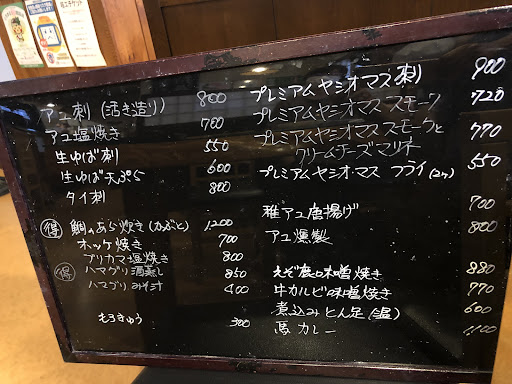 アユ刺(活き造り) 800
アユ塩焼き 700
生ゆば刺 550
生ゆば天ぷら 600
タイ刺 800
得 鯛のあら炊き(かぶと) 1200
ホッケ焼き 700
ブリカマ塩焼き 800
得 ハマグリ酒蒸し 850
ハマグリみそ汁 400
もろきゅう 300
プレミアムヤシオマス刺 900
プレミアムヤシオマス スモーク 720
プレミアムヤシオマス スモークと
クリームチーズマリネ 770
プレミアムヤシオマス フライ(2ヶ) 550
稚アユ唐揚げ 700
アユ燻製 800
えぞ鹿の味噌焼き 880
牛カルビ味噌焼き 770
煮込みとん足(温) 600
馬カレー 1100